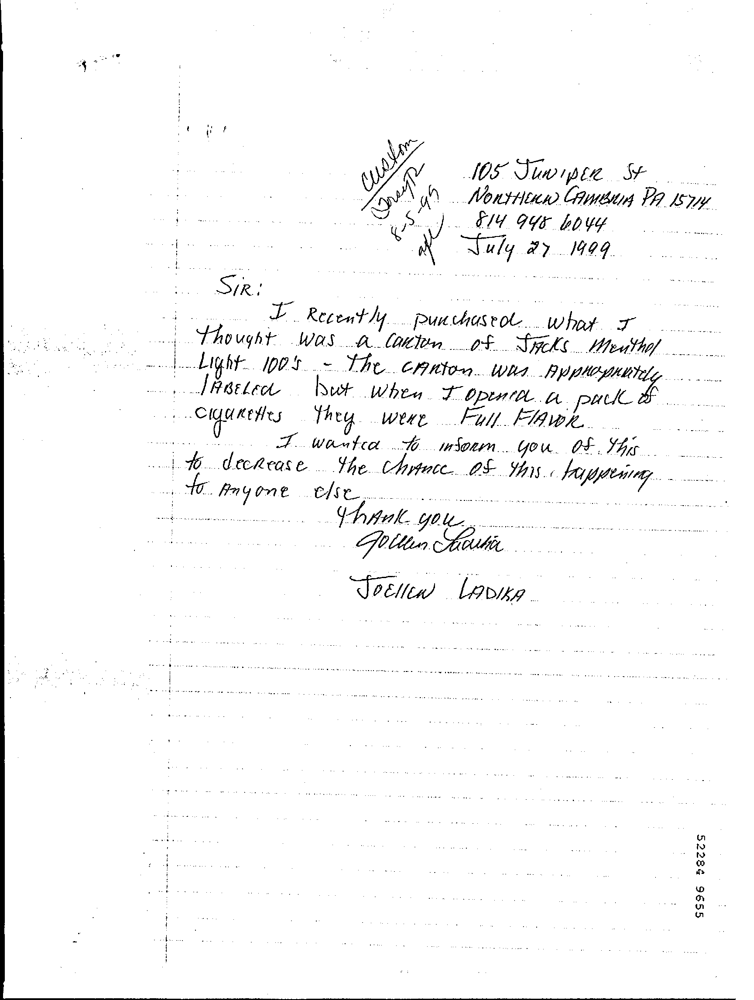 Custom
8-5-99
105 JUNIPER St
NORTHERN CAMBRIA PA 15714
814 948 6044
July 27 1999
SIR:
I Recently purchased what I
thought was a carton of JACKS Menthol
Light 100's - The CARTON was Appropriately
LABELED but when I opened a pack of
cigarettes they were Full FLAVOR
I wanted to inform you of this
to decrease the chance of this happening
to Anyone else
Thank you
Joellen Ladika
JOELLEN LADIKA
52284 9655